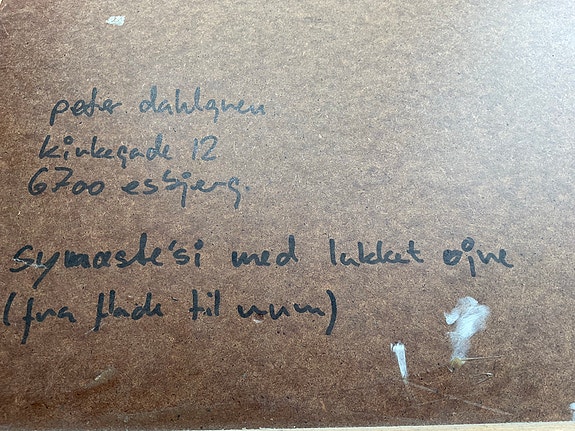 peter dahlgren
kirkegade 12
6700 esbjerg.
symæste'si med lukket øjne
(fra flade til rum)